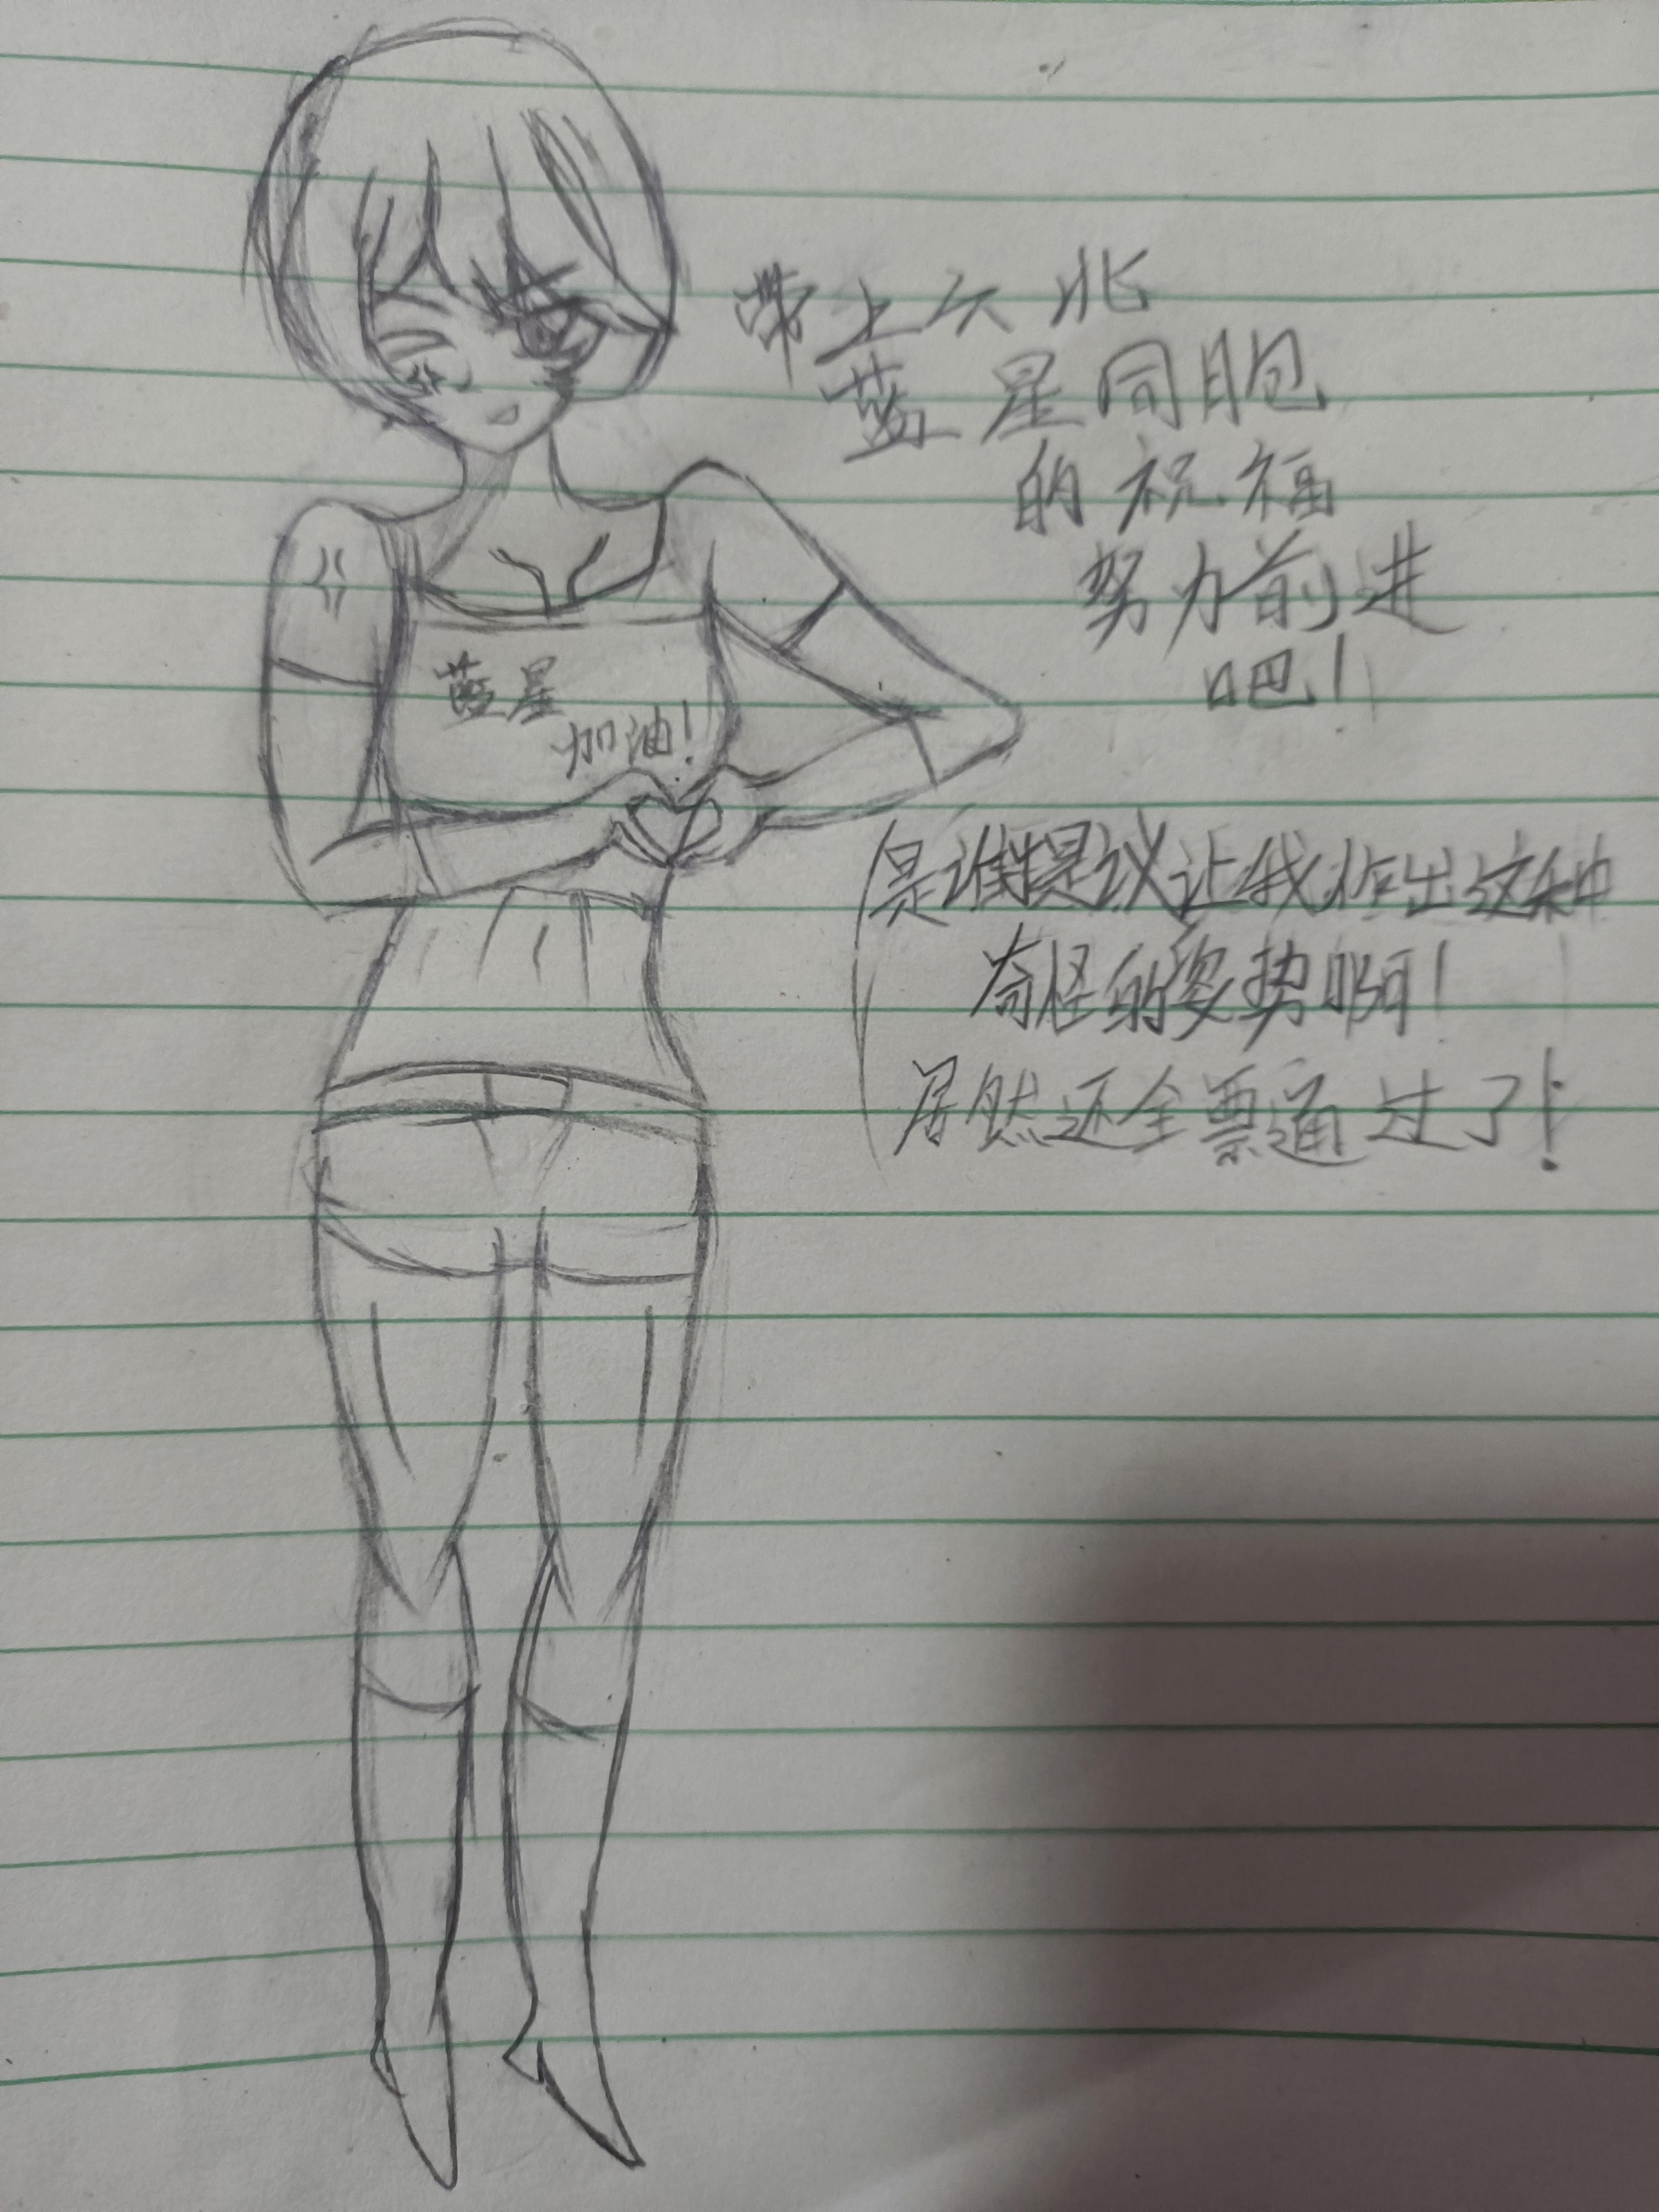 带上六北
蓝星同胞
的祝福
努力前进
吧！
蓝星
加油！
（是谁提议让我作出这种
奇怪的姿势啊！
居然还全票通过了！